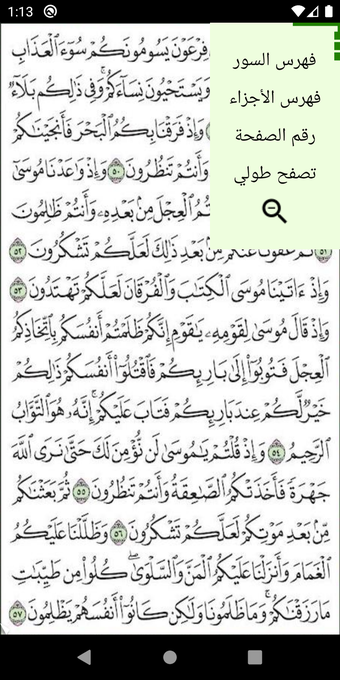 1:13
فهرس السور
فهرس الأجزاء
رقم الصفحة
تصفح طولي
فِرْعَوْنَ يَسُومُونَكُمْ سُوٓءَ ٱلْعَذَابِ
وَيَسْتَحْيُونَ نِسَآءَكُمْ ۚ وَفِى ذَٰلِكُم بَلَآءٌ
وَإِذْ فَرَقْنَا بِكُمُ ٱلْبَحْرَ فَأَنجَيْنَٰكُمْ
وَأَنتُمْ تَنظُرُونَ ٥٠ وَإِذْ وَٰعَدْنَا مُوسَىٰٓ
ٱلْعِجْلَ مِنۢ بَعْدِهِۦ وَأَنتُمْ ظَٰلِمُونَ
٥١ عَفَوْنَا عَنكُم مِّنۢ بَعْدِ ذَٰلِكَ لَعَلَّكُمْ تَشْكُرُونَ ٥٢
وَإِذْ ءَاتَيْنَا مُوسَى ٱلْكِتَٰبَ وَٱلْفُرْقَانَ لَعَلَّكُمْ تَهْتَدُونَ ٥٣
وَإِذْ قَالَ مُوسَىٰ لِقَوْمِهِۦ يَٰقَوْمِ إِنَّكُمْ ظَلَمْتُمْ أَنفُسَكُم بِٱتِّخَاذِكُمُ
ٱلْعِجْلَ فَتُوبُوٓا۟ إِلَىٰ بَارِئِكُمْ فَٱقْتُلُوٓا۟ أَنفُسَكُمْ ذَٰلِكُمْ
خَيْرٌ لَّكُمْ عِندَ بَارِئِكُمْ فَتَابَ عَلَيْكُمْ ۚ إِنَّهُۥ هُوَ ٱلتَّوَّابُ
ٱلرَّحِيمُ ٥٤ وَإِذْ قُلْتُمْ يَٰمُوسَىٰ لَن نُّؤْمِنَ لَكَ حَتَّىٰ نَرَى ٱللَّهَ
جَهْرَةً فَأَخَذَتْكُمُ ٱلصَّٰعِقَةُ وَأَنتُمْ تَنظُرُونَ ٥٥ ثُمَّ بَعَثْنَٰكُم
مِّنۢ بَعْدِ مَوْتِكُمْ لَعَلَّكُمْ تَشْكُرُونَ ٥٦ وَظَلَّلْنَا عَلَيْكُمُ
ٱلْغَمَامَ وَأَنزَلْنَا عَلَيْكُمُ ٱلْمَنَّ وَٱلسَّلْوَىٰ ۖ كُلُوا۟ مِن طَيِّبَٰتِ
مَا رَزَقْنَٰكُمْ ۖ وَمَا ظَلَمُونَا وَلَٰكِن كَانُوٓا۟ أَنفُسَهُمْ يَظْلِمُونَ ٥٧